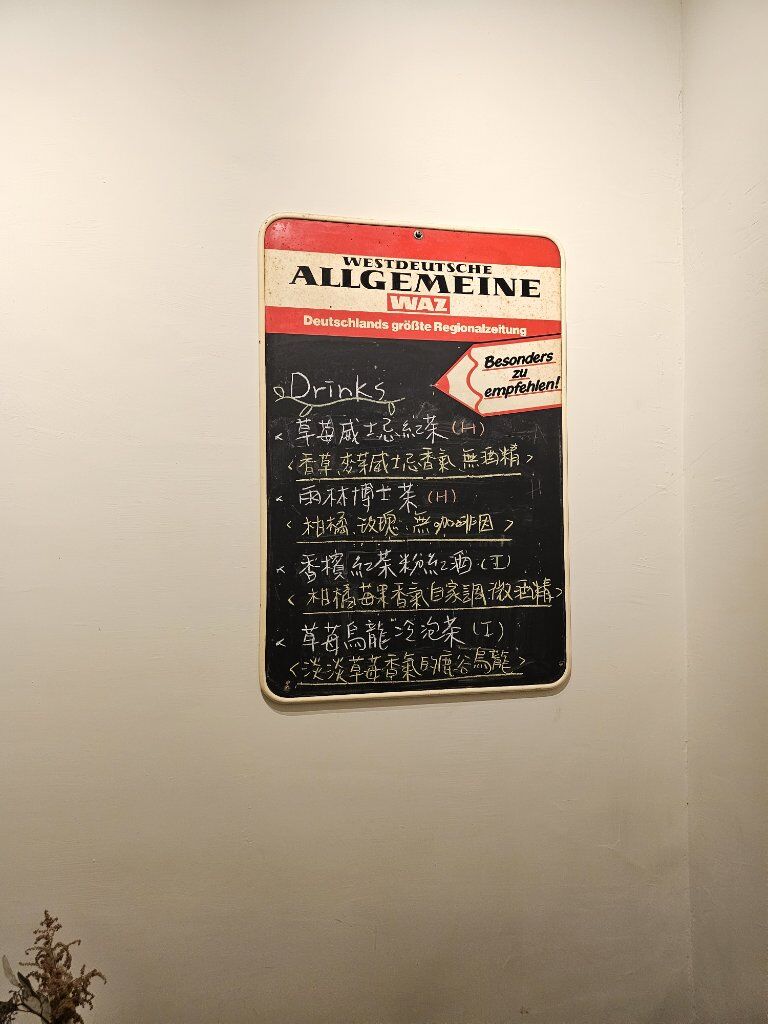 WESTDEUTSCHE
ALLGEMEINE
WAZ
Deutschlands größte Regionalzeitung
Besonders
zu
empfehlen!
Drinks
< 草莓威士忌紅茶 (H)
<香草.麥芽威士忌香氣.無酒精>
< 雨林博士茶 (H)
< 柑橘.玫瑰.無咖啡因 >
< 香檳紅茶粉紅酒.(I)
< 柑橘莓果香氣自家調.微酒精>
< 草莓烏龍"冷泡茶 (I)
<淡淡草莓香氣的鹿谷烏龍>